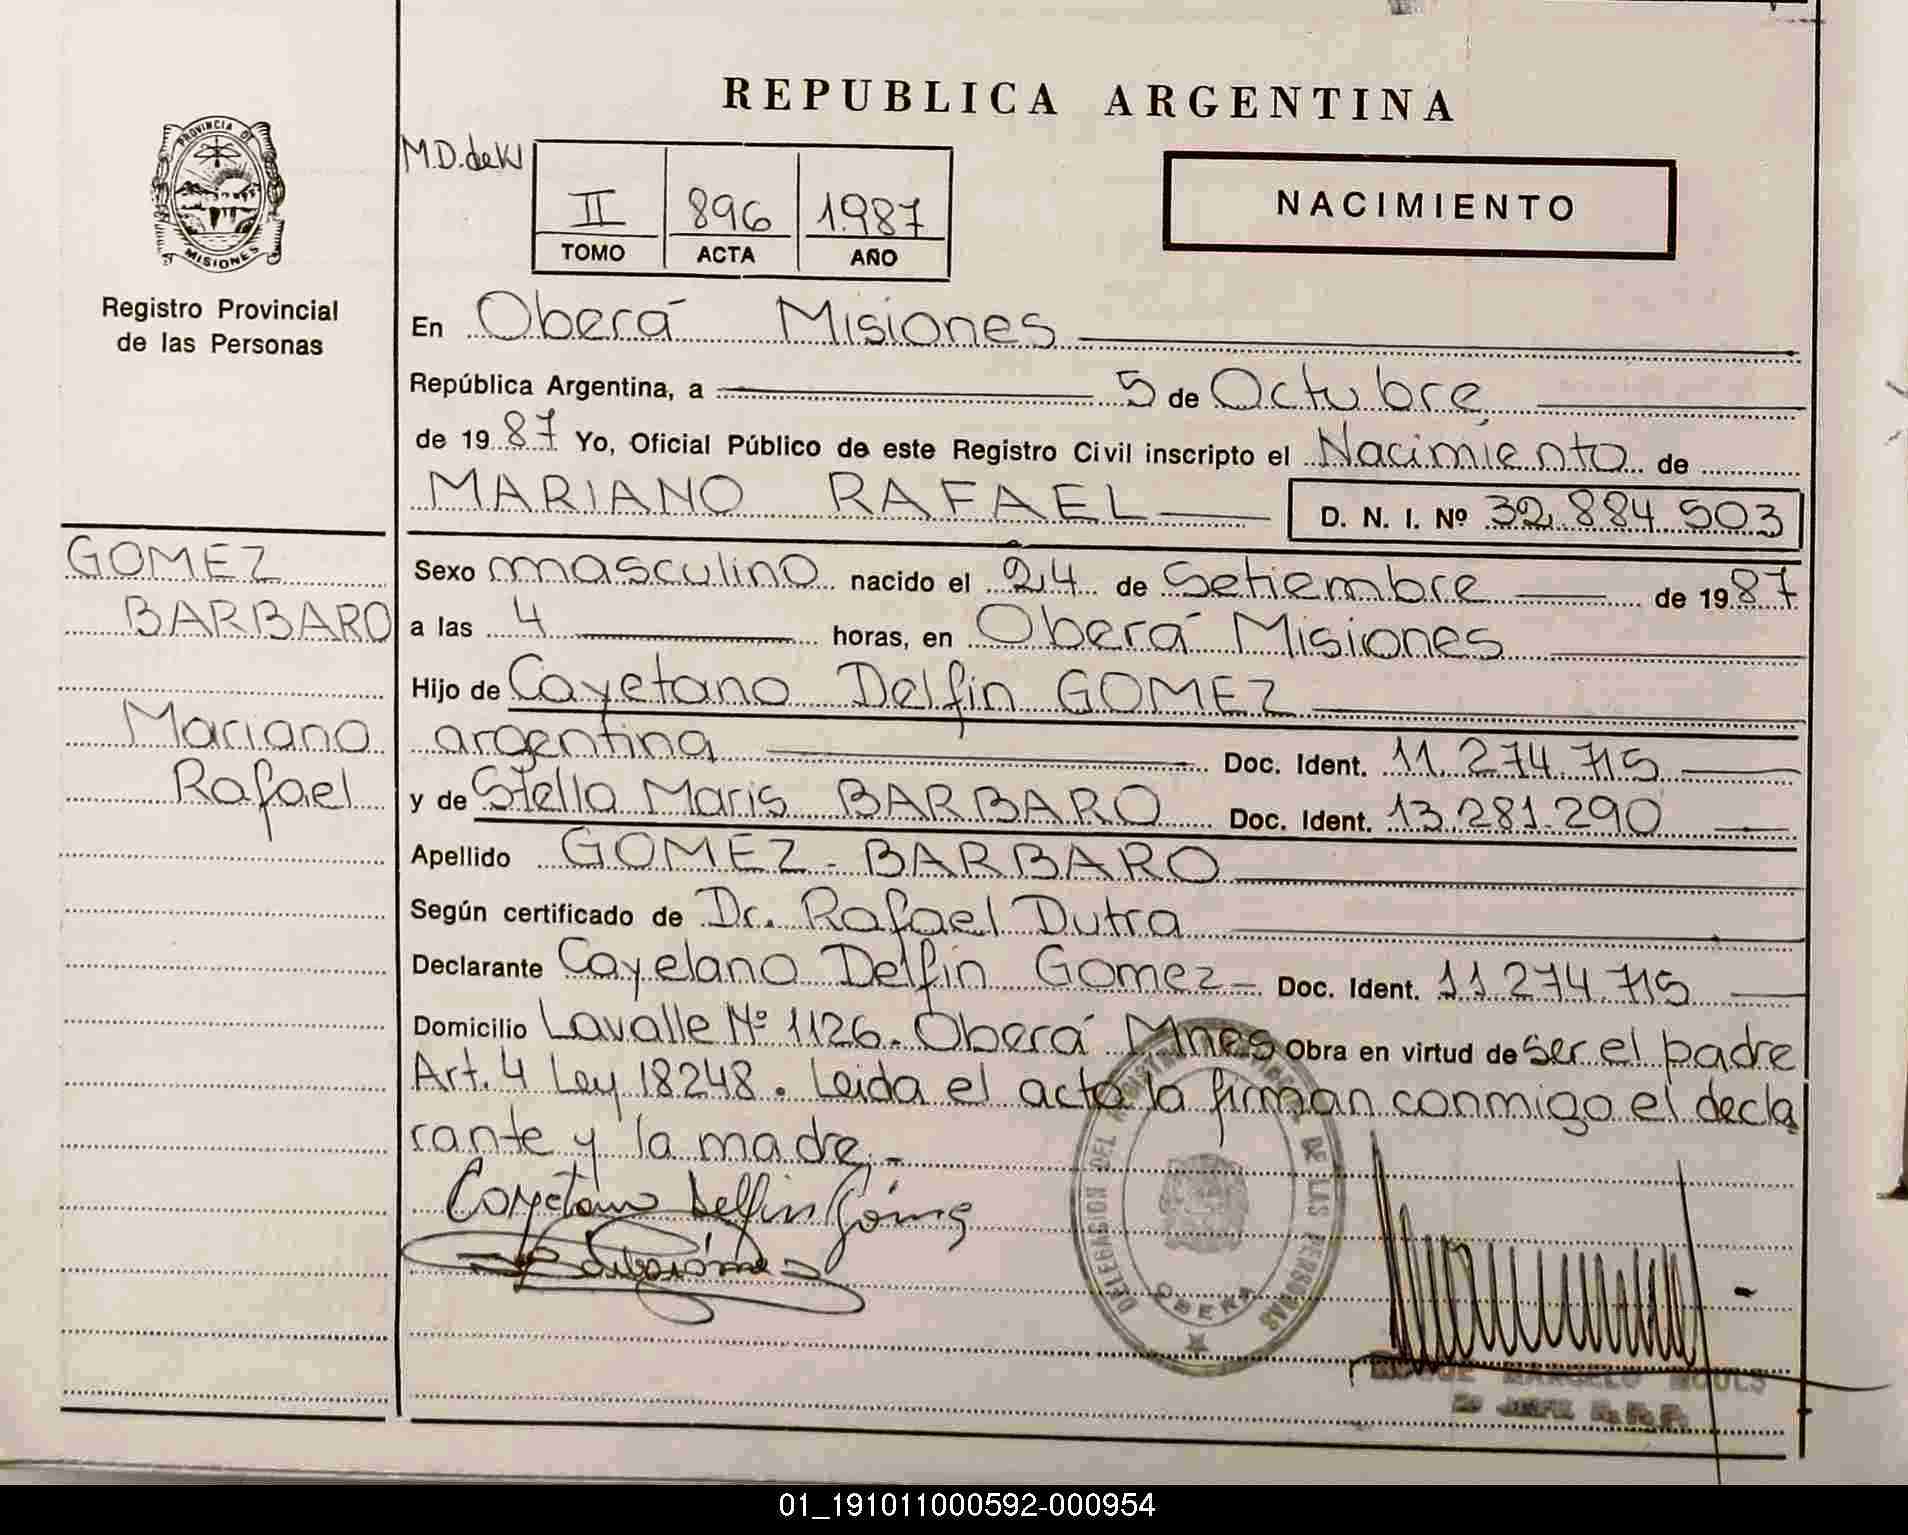 REPUBLICA ARGENTINA
PROVINCIA DE
MISIONES
Registro Provincial
de las Personas
M.D.deW
II 896 1.987
TOMO ACTA AÑO
NACIMIENTO
En Oberá Misiones
República Argentina, a 5 de Octubre
de 1987 Yo, Oficial Público de este Registro Civil inscripto el Nacimiento de
MARIANO RAFAEL D. N. I. Nº 32.884.503
GOMEZ
BARBARO
Mariano
Rafael
Sexo masculino nacido el 24 de Setiembre de 1987
a las 4 horas, en Oberá Misiones
Hijo de Cayetano Delfin GOMEZ
argentina Doc. Ident. 11.274.715
y de Stella Maris BARBARO Doc. Ident. 13.281.290
Apellido GOMEZ - BARBARO
Según certificado de Dr. Rafael Dutra
Declarante Cayetano Delfin Gomez - Doc. Ident. 11.274.715
Domicilio Lavalle Nº 1126. Oberá Mnes Obra en virtud de ser el padre
Art. 4 Ley 18248. Leida el acta la firman conmigo el decla
rante y la madre.-
Cayetano Delfin Gómez
DELEGACION DEL REGISTRO PROVINCIAL DE LAS PERSONAS
OBERA
MARCELO
01_191011000592-000954